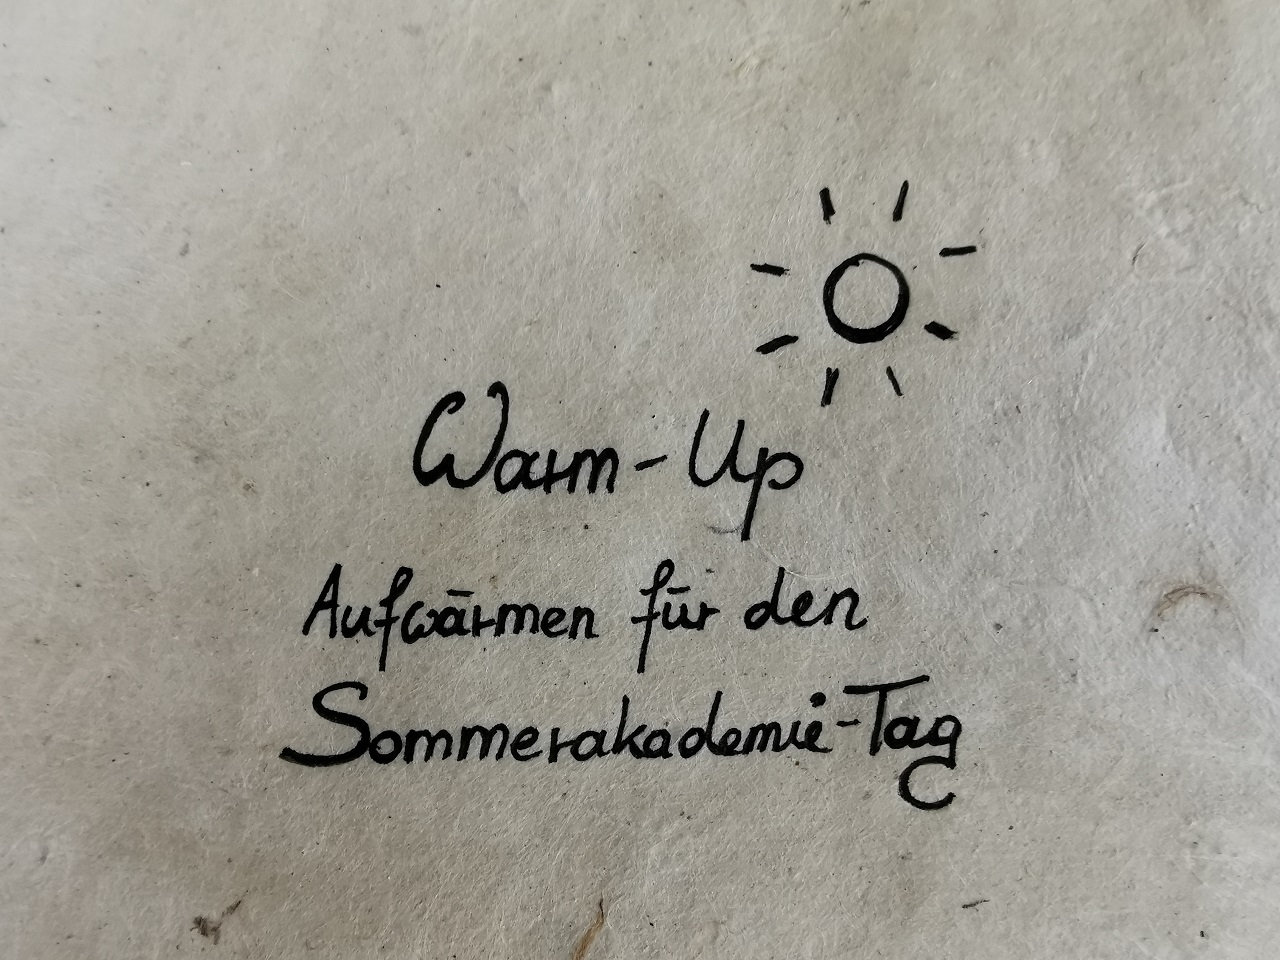 Warm-Up
Aufwärmen für den
Sommerakademie-Tag